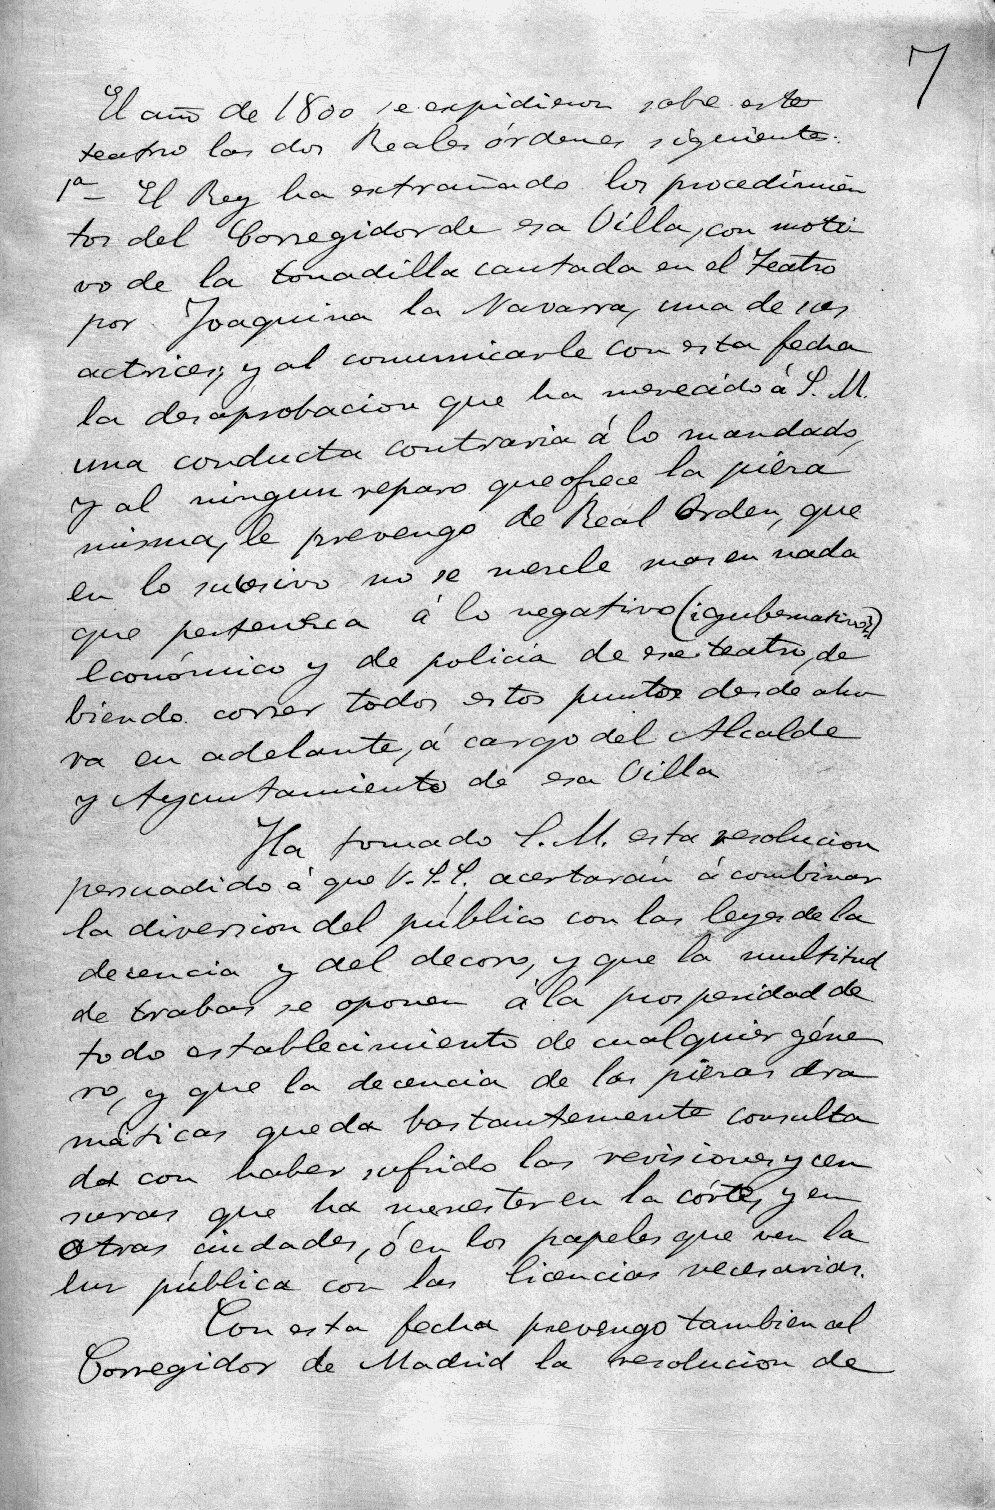 7
El año de 1800 se expidieron sobre este
teatro las dos Reales órdenes siguientes.
1ª El Rey ha extrañado los procedimien
tos del Corregidor de esa Villa, con moti
vo de la tonadilla cantada en el Teatro
por Joaquina la Navarra, una de sus
actrices, y al comunicarle con esta fecha
la desaprobacion que ha merecido á S. M.
una conducta contraria á lo mandado,
y al ningun reparo que ofrece la pieza
misma, le prevengo de Real Orden, que
en lo sucesivo no se mezcle mas en nada
que pertenezca á lo negativo (¿gubernativo?)
económico y de policia de ese teatro, de
biendo correr todos estos puntos desde aho
ra en adelante, á cargo del Alcalde
y Ayuntamiento de esa Villa
Ha tomado S. M. esta resolucion
persuadido á que V. S. S. acertarán á combinar
la diversion del público con las leyes de la
decencia y del decoro, y que la multitud
de trabas se oponen á la prosperidad de
todo establecimiento de cualquier géne
ro, y que la decencia de las piezas dra
máticas queda bastantemente consulta
da con haber sufrido las revisiones y cen
suras que ha menester en la córte, y en
otras ciudades, ó en los papeles que ven la
luz pública con las licencias necesarias.
Con esta fecha prevengo tambien al
Corregidor de Madrid la resolucion de